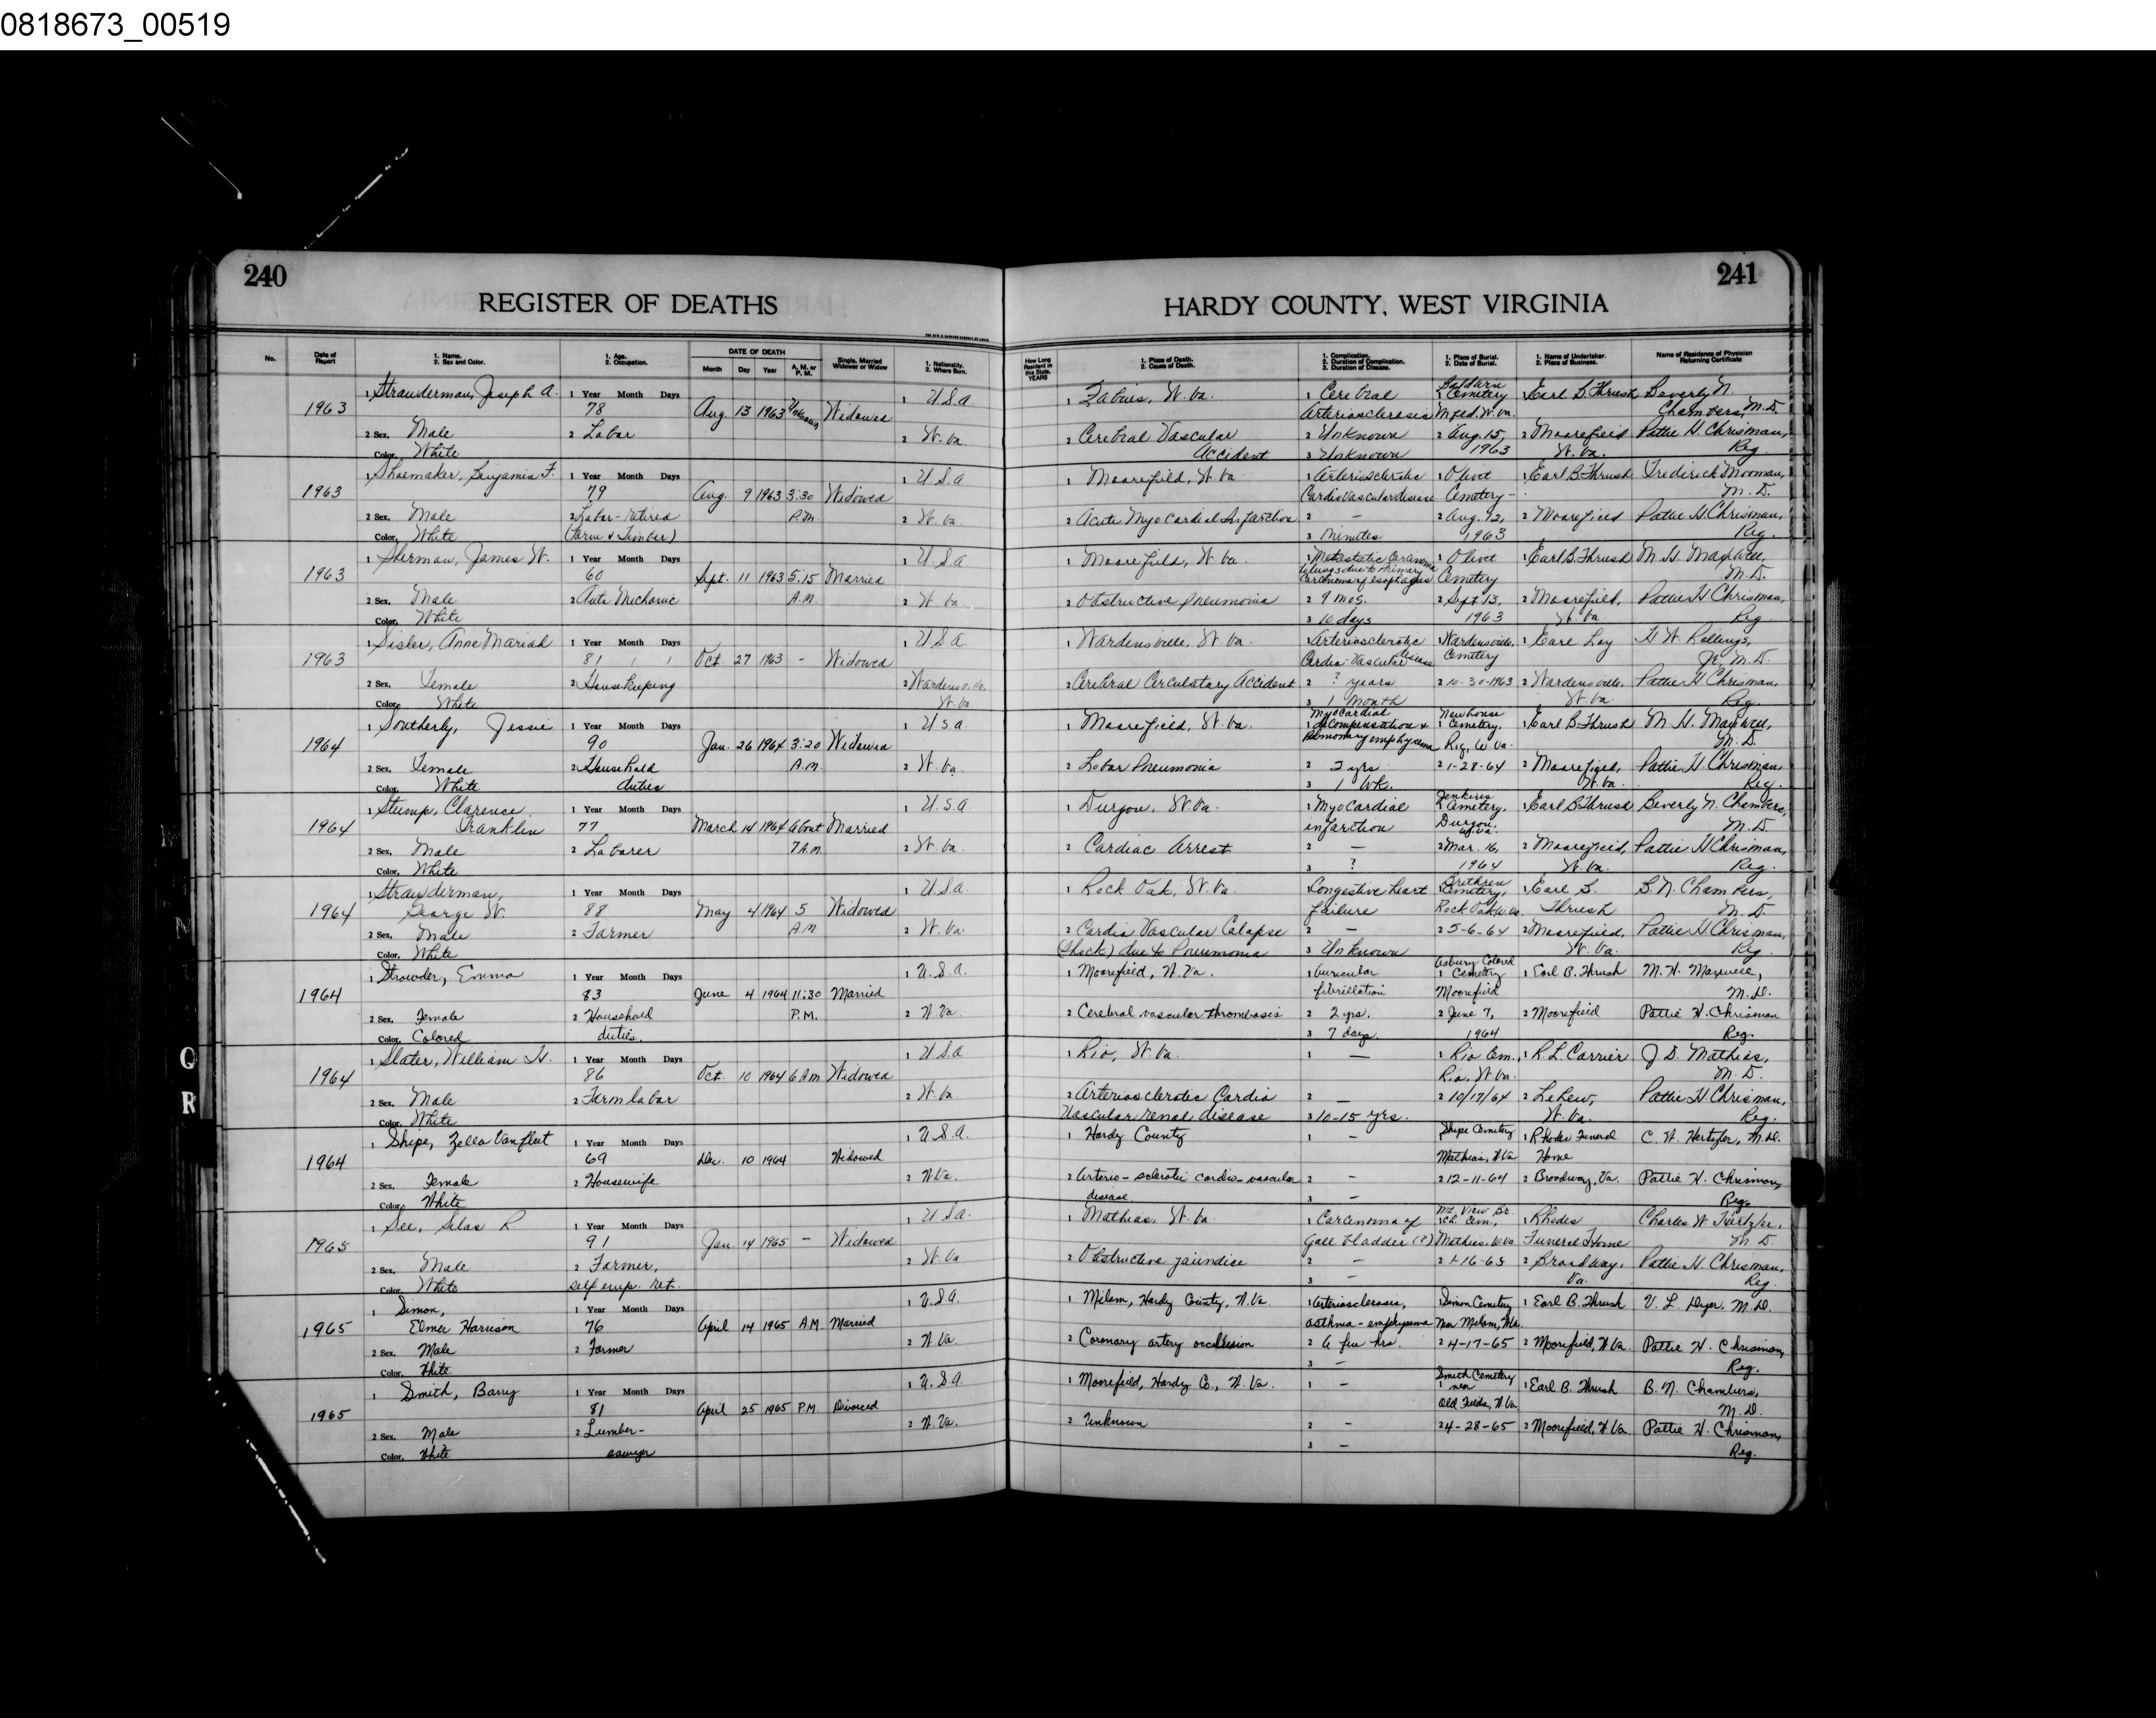 0818673_00519
240
REGISTER OF DEATHS
No.
Date of Report
1. Name.
2. Sex and Color.
1. Age.
2. Occupation.
DATE OF DEATH
Month Day Year A. M. or P. M.
Single, Married Widower or Widow
1. Nationality.
2. Where Born.
241
HARDY COUNTY, WEST VIRGINIA
How Long Resident in this State. YEARS
1. Place of Death.
2. Cause of Death.
1. Complication.
2. Duration of Complication.
3. Duration of Disease.
1. Place of Burial.
2. Date of Burial.
1. Name of Undertaker.
2. Place of Business.
Name of Residence of Physician Returning Certificate
1963 1 Strawderman, Joseph A. 1 Year Month Days 78 Aug. 13 1963 Unknown Widowed 1 U.S.A. 1 Fabius, W. Va. 1 Cerebral Arteriosclerosis Cemetery Mfed. W. Va. 1 Earl B. Thrush Beverly N. Chambers, M.D.
2 Sex, Male 2 Labor 2 W. Va. 2 Cerebral Vascular Accident 2 Unknown 2 Aug. 15, 1963 2 Moorefield W. Va. Pattie H. Chrisman, Reg.
Color, White 3 Unknown
1963 1 Shoemaker, Benjamin F. 1 Year Month Days 79 Aug. 9 1963 3:30 P.M. Widowed 1 U.S.A. 1 Moorefield, W. Va. 1 Arteriosclerotic Cardiovascular disease 1 Olivet Cemetery - 1 Earl B. Thrush Frederick Mooman, M.D.
2 Sex, Male 2 Labor-retired (Farm & Timber) 2 W. Va. 2 Acute Myocardial Infarction 2 - 2 Aug. 12, 1963 2 Moorefield Pattie H. Chrisman, Reg.
Color, White 3 Minutes
1963 1 Sherman, James W. 1 Year Month Days 60 Sept. 11 1963 5:15 A.M. Married 1 U.S.A. 1 Moorefield, W. Va. 1 Metastatic Carcinoma to lungs due to primary carcinoma of esophagus 1 Olivet Cemetery 1 Earl B. Thrush M. H. Maxwell, M.D.
2 Sex, Male 2 Auto Mechanic 2 W. Va. 2 Obstructive Pneumonia 2 9 mos. 2 Sept 13, 1963 2 Moorefield, W. Va. Pattie H. Chrisman, Reg
Color, White 3 10 days
1963 1 Sisler, Anne Mariah 1 Year Month Days 81 1 1 Oct. 27 1963 - Widowed 1 U.S.A. 1 Wardensville, W. Va. 1 Arteriosclerotic Cardio-Vascular disease 1 Wardensville, Cemetery 1 Earl Loy H. W. Rollings, Jr. M.D.
2 Sex, Female 2 Housekeeping 2 W. Va. 2 Cerebral Circulatory Accident 2 ? years 2 10-30-1963 2 Wardensville, W. Va. Pattie H. Chrisman, Reg.
Color, White 3 1 Month
1964 1 Southerly, Jessie 1 Year Month Days 90 Jan. 26 1964 3:20 A.M. Widowed 1 U.S.A. 1 Moorefield, W. Va. 1 Myocardial decompensation & Pulmonary emphysema 1 Newhouse Cemetery, Rig, W. Va. 1 Earl B. Thrush M. H. Maxwell, M.D.
2 Sex, Female 2 Household duties 2 W. Va. 2 Lobar Pneumonia 2 2 yrs 2 1-28-64 2 Moorefield, W. Va. Pattie H. Chrisman, Reg.
Color, White 3 1 Wk.
1964 1 Stump, Clarence Franklin 1 Year Month Days 77 March 14 1964 About 7 A.M. Married 1 U.S.A. 1 Durgon, W. Va. 1 Myocardial infarction 1 Jenkins Cemetery, Durgon, W. Va. 1 Earl B. Thrush Beverly N. Chambers, M.D.
2 Sex, Male 2 Laborer 2 W. Va. 2 Cardiac Arrest 2 - 2 Mar. 16, 1964 2 Moorefield, W. Va. Pattie H. Chrisman, Reg.
Color, White 3 ?
1964 1 Strawderman, George W. 1 Year Month Days 88 May 4 1964 5 A.M Widowed 1 U.S.A. 1 Rock Oak, W. Va. 1 Congestive heart failure 1 Brethren Cemetery, Rock Oak W. Va. 1 Earl B. Thrush B. N. Chambers, M.D.
2 Sex, Male 2 Farmer 2 W. Va. 2 Cardio Vascular Colapse (Shock) due to Pneumonia 2 - 2 5-6-64 2 Moorefield, W. Va. Pattie H. Chrisman, Reg
Color, White 3 Unknown
1964 1 Strowder, Emma 1 Year Month Days 83 June 4 1964 11:30 P.M. Married 1 U.S.A. 1 Moorefield, W. Va. 1 Auricular fibrillation 1 Asbury Colored Cemetery Moorefield 1 Earl B. Thrush M. H. Maxwell, M.D.
2 Sex, Female 2 Household duties. 2 W. Va. 2 Cerebral vascular thrombosis 2 2 yrs. 2 June 7, 1964 2 Moorefield Pattie H. Chrisman Reg.
Color, Colored 3 7 days
1964 1 Slater, William H. 1 Year Month Days 86 Oct. 10 1964 6 AM Widowed 1 U.S.A. 1 Rio, W. Va. 1 - 1 Rio Cem., Rio, W. Va. 1 R. L. Carrier J. D. Mathias, M.D.
2 Sex, Male 2 Farm labor 2 W. Va. 2 Arteriosclerotic Cardio Vascular renal disease 2 - 2 10/17/64 2 Lehew, W. Va. Pattie H. Chrisman, Reg.
Color, White 3 10-15 yrs.
1964 1 Shipe, Zella Vanfleet 1 Year Month Days 69 Dec. 10 1964 Widowed 1 U.S.A. 1 Hardy County 1 - 1 Shipe Cemetery Mathias, W Va 1 Rhodes Funeral Home C. W. Hertzler, M.D.
2 Sex, Female 2 Housewife 2 W. Va. 2 Arterio-sclerotic cardio-vascular disease 2 - 2 12-11-64 2 Broadway, Va. Pattie H. Chrisman, Reg.
Color, White 3 -
1965 1 See, Silas R 1 Year Month Days 91 Jan. 14 1965 - Widowed 1 U.S.A. 1 Mathias, W. Va. 1 Carcinoma of Gall bladder (?) 1 Mt. View Br. Ch. Cem., Mathias, W. Va. 1 Rhodes Funeral Home Charles W. Hertzler, M.D
2 Sex, Male 2 Farmer, self emp. ret. 2 W. Va 2 Obstructive jaundice 2 - 2 1-16-65 2 Broadway, Va. Pattie H. Chrisman, Reg.
Color, White 3 -
1965 1 Simon, Elmer Harrison 1 Year Month Days 76 April 14 1965 A.M. Married 1 U.S.A. 1 Milam, Hardy County, W. Va 1 Arteriosclerosis, asthma-emphysema 1 Simon Cemetery Near Milam, W. Va. 1 Earl B. Thrush V. L. Dyer, M.D.
2 Sex, Male 2 Farmer 2 W. Va. 2 Coronary artery occlusion 2 A few hrs. 2 4-17-65 2 Moorefield, W Va. Pattie H. Chrisman, Reg.
Color, White 3 -
1965 1 Smith, Barry 1 Year Month Days 81 April 25 1965 P.M. Divorced 1 U.S.A. 1 Moorefield, Hardy Co., W. Va. 1 - 1 Smith Cemetery near Old Fields, W Va 1 Earl B. Thrush B. N. Chambers, M.D.
2 Sex, Male 2 Lumber-sawyer 2 W. Va. 2 Unknown 2 - 2 4-28-65 2 Moorefield, W Va Pattie H. Chrisman, Reg.
Color, White 3 -